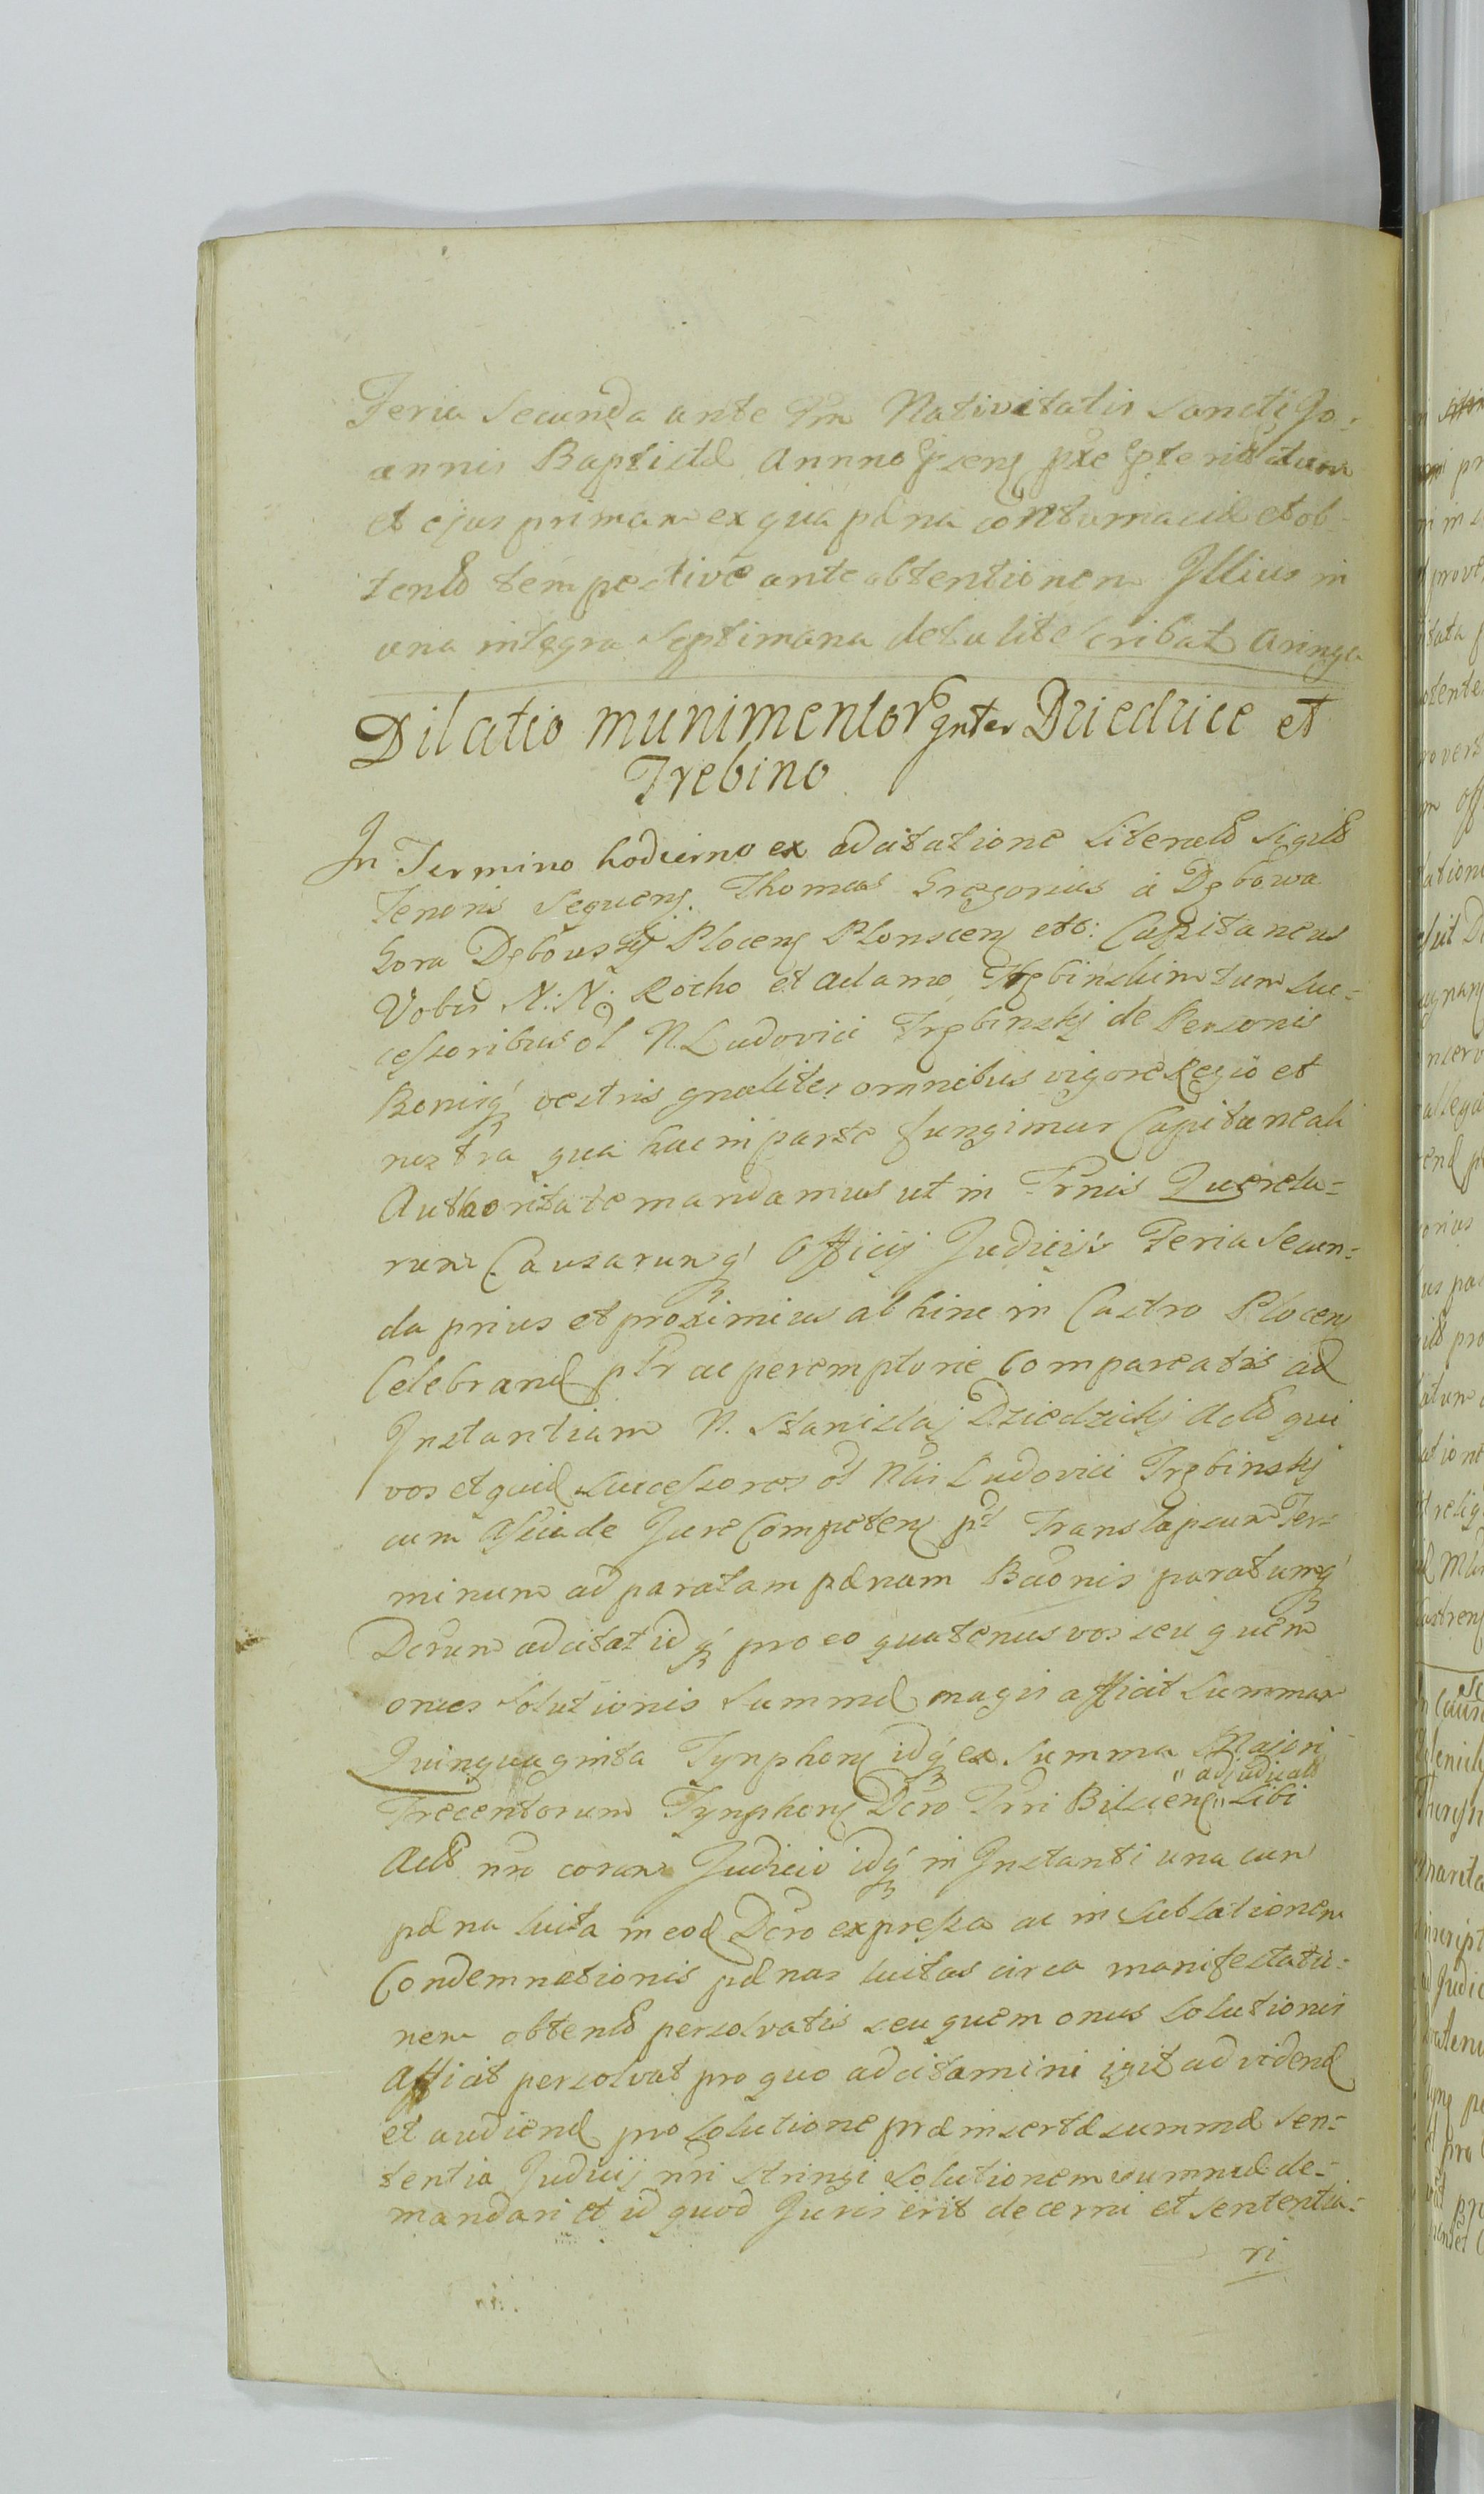 Feria Secunda ante Fm Nativitatis Sancti Jo-
annis Baptistæ Annno prsen præpteritt dum
et ejus priman ex qua pæna contumaciæ et ob-
tentt tempestive ante obtentionem Illius in
una integra Septimana detulit Scribat Aringa
Dilatio munimentor inter Dziedzice et
Trebino
In Termino hodierno ex adcitatione Literali Sigill
Tenoris Sequens. Thomas Gregorius à Dębowa
Gora Dębowskj Plocen Plonscen etc: Capitaneus
Vobis N: N: Rocho et Adamo Trębinskim tum Suc-
cessoribus ol N. Ludovici Trębinskj de Personis
Bonisq vestris gnaliter omnibus vigore Regiô et
nostra qua hac in parte fungimur Capitaneali
Authoritate mandamus ut in Trnis Querela-
rum Causarumq Officij Judicijs Feria Secun-
da prius et proximius ab hinc in Castro Plocen
Celebrand pltr ac peremptorie Compareatis ad
Instantiam N. Stanislaj Dziedzickj Act qui
vos et quid Successores ol Nlis Ludovici Trębinskj
cum Assia de Jure Competen pt Translapsum Ter-
minum ad paratam pænam Bãonis paratumq
Dcrum adcitat idq pro eo quatenus vos seu quem
onus Solutionis Summæ magis afficit Summam
Quinquaginta Tynphon idq ex Summa Majori
Trecentorum Tynphon Dcro Trri Bilscen " Sibi
" adjudicatt
Actt nro coram Judicio idq in Instanti una cum
pæna luita in eod Dcro expressa ac in Sublationem
Condemnationis pænas luitas circa manifestatio-
nem obtentt persolvatis seu quem onus Solutionis
Afficit persolvat pro quo adcitamini igit ad vidend
et audiend pro Solutione præinsertæ summæ Sen-
tentia Judicij nri stringi Solutionem summæ de-
mandari et id quod Juris erit decerni et sententia-
ri